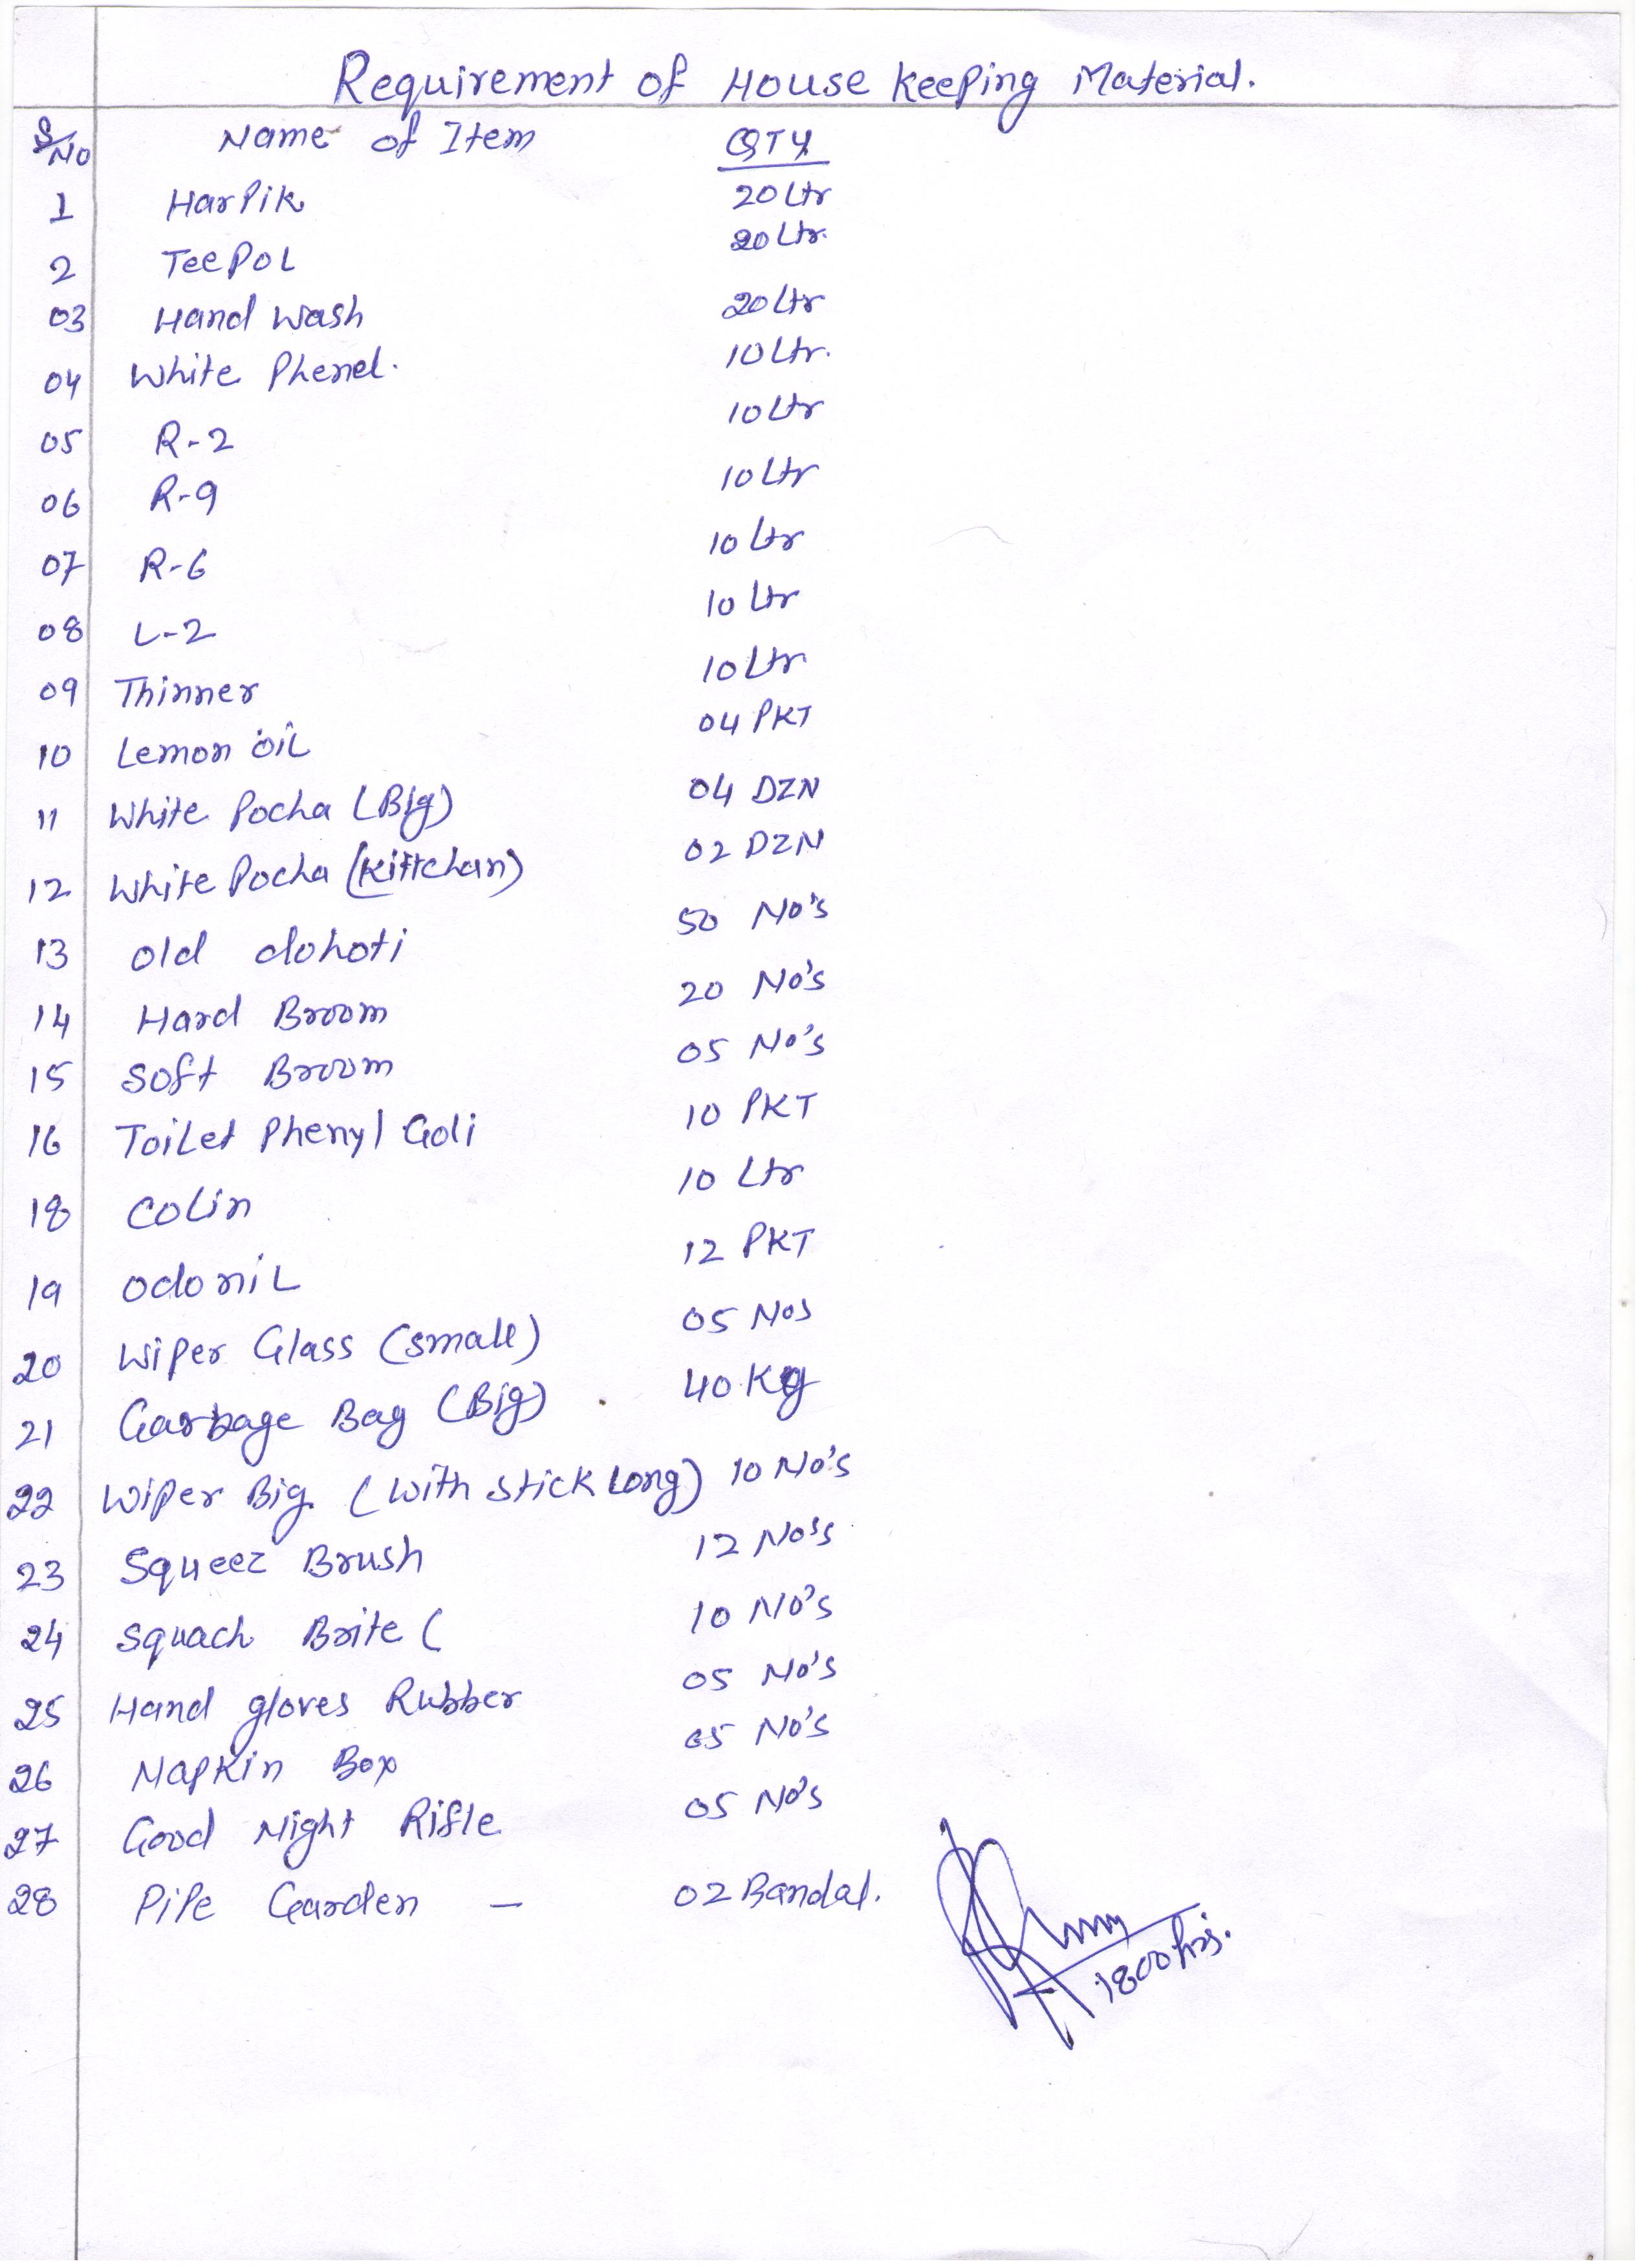 Requirement of House Keeping Material.
S/No Name of Item QTY
1 Harpik 20 Ltr
2 TeePol 20 Ltr.
03 Hand Wash 20 Ltr
04 White Phenel. 10 Ltr.
05 R-2 10 Ltr
06 R-9 10 Ltr
07 R-6 10 Ltr
08 L-2 10 Ltr
09 Thinner 10 Ltr
10 Lemon oil 04 PKT
11 White Pocha (Big) 04 DZN
12 White Pocha (Kittchan) 02 DZN
13 old dohoti 50 No's
14 Hard Broom 20 No's
15 Soft Broom 05 No's
16 Toilet Phenyl Goli 10 PKT
18 Colin 10 Ltr
19 odonil 12 PKT
20 Wiper Glass (small) 05 Nos
21 Garbage Bag (Big) 40 Kg
22 Wiper Big (with stick Long) 10 No's
23 Squeez Brush 12 No's
24 Squach Brite ( 10 No's
25 Hand gloves Rubber 05 No's
26 Napkin Box 05 No's
27 Good Night Rifle 05 No's
28 Pipe Garden — 02 Bandal.
1800 hrs.